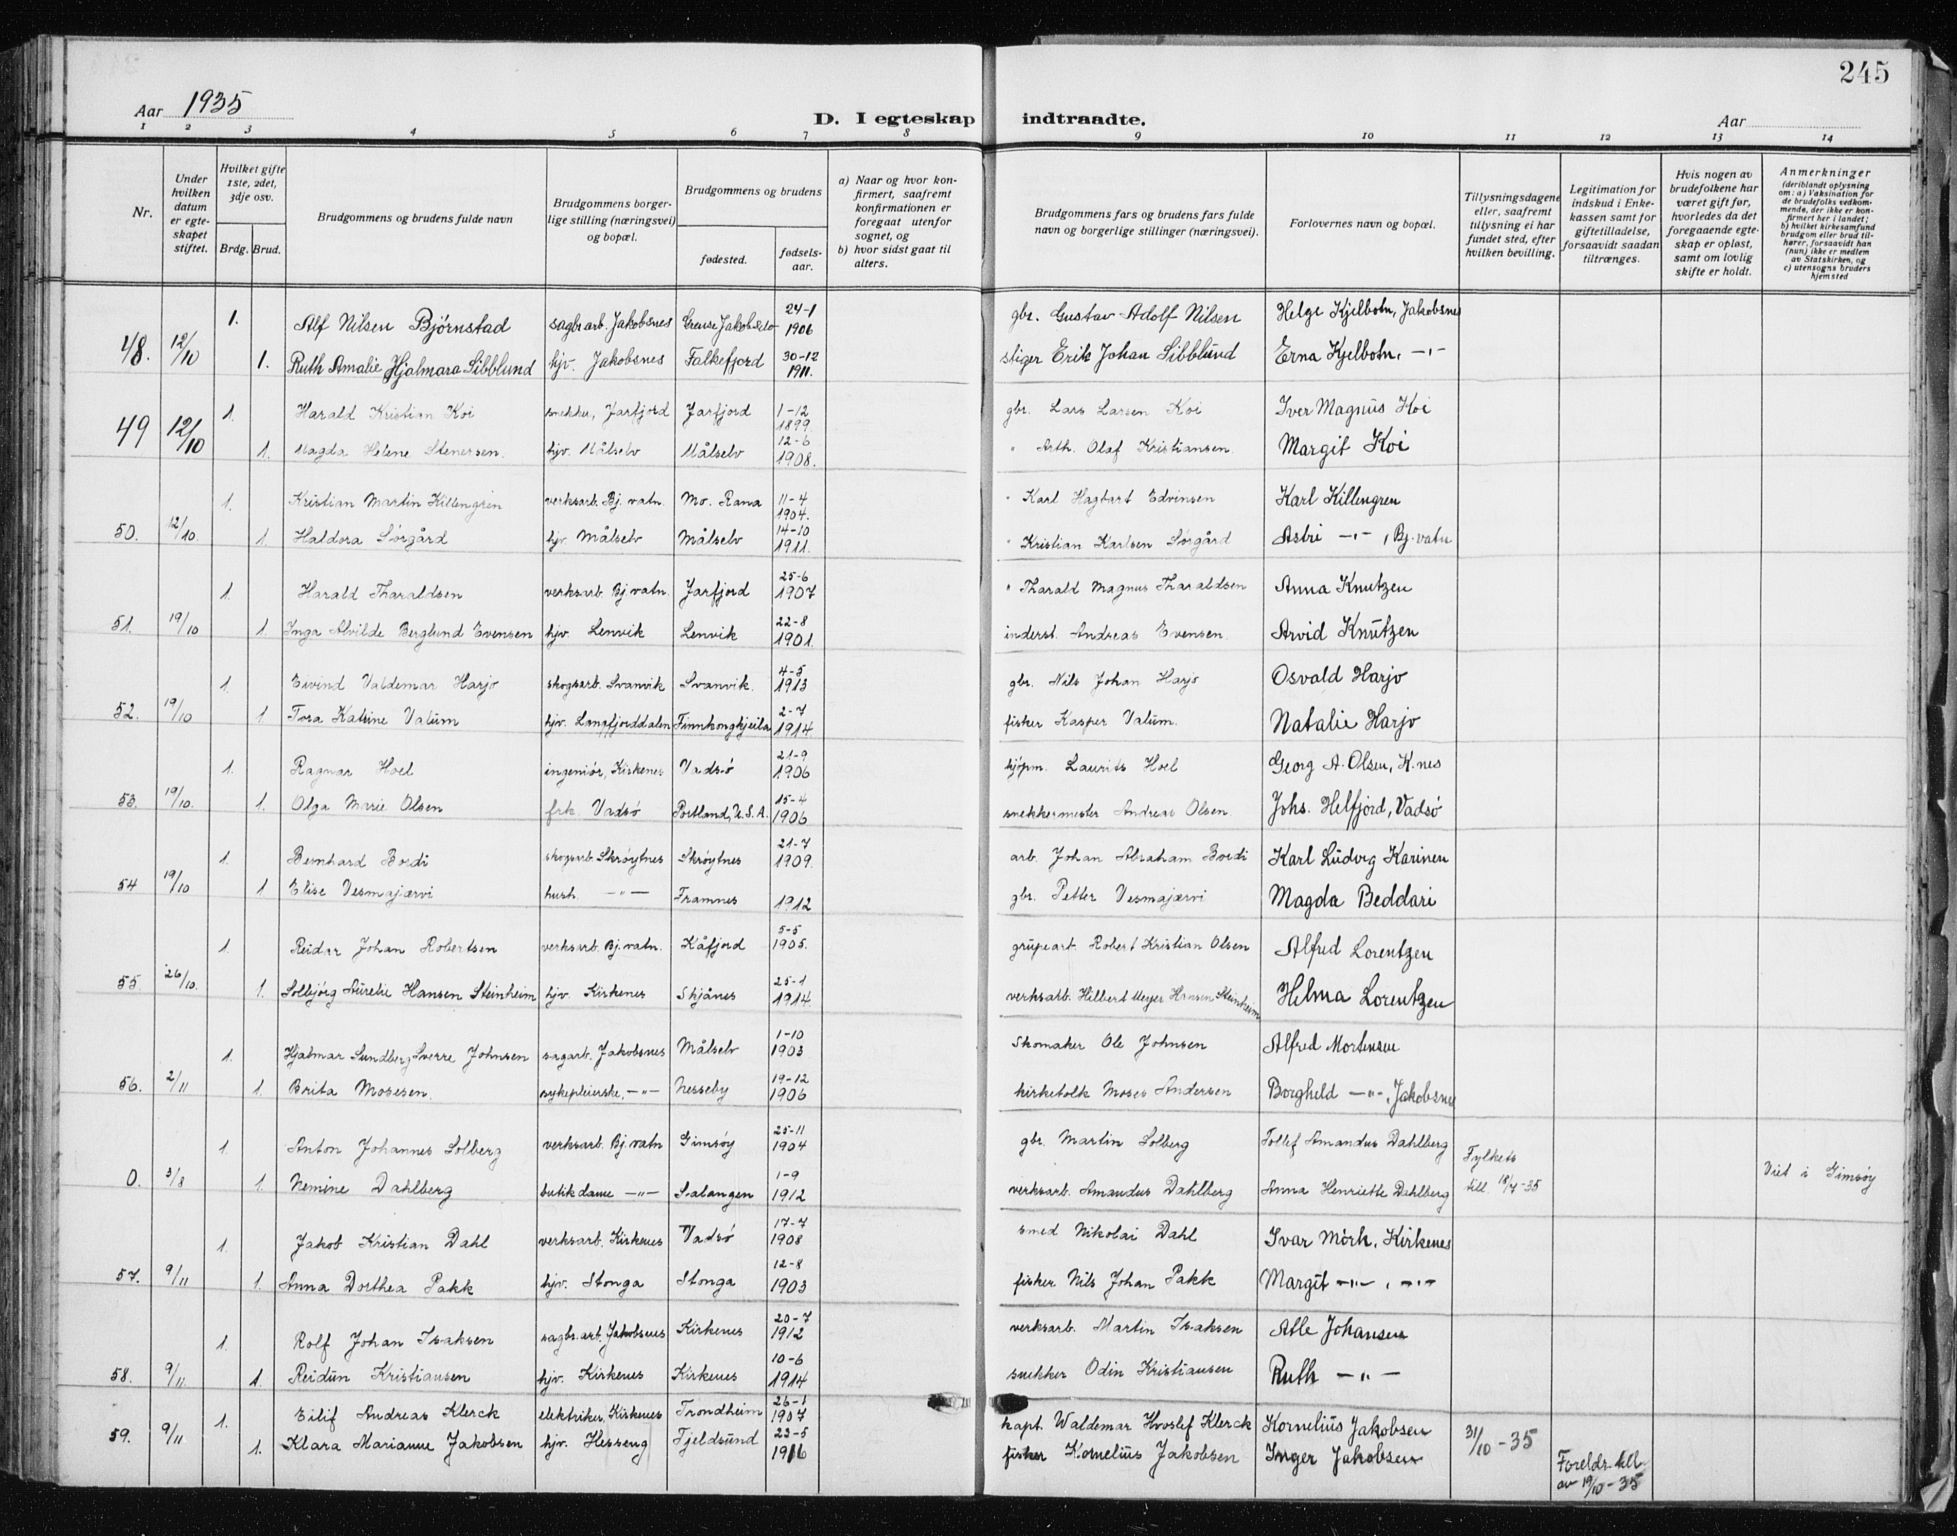 245
Aar 1935
D. I egteskap indtraadte.
Aar
1 2 3 4 5 6 7 8 9 10 11 12 13 14
Nr.
Under hvilken datum er egteskapet stiftet.
Hvilket gifte 1ste, 2det, 3dje osv.
Brdg. Brud.
Brudgommens og brudens fulde navn
Brudgommens borgerlige stilling (næringsvei) og bopæl.
Brudgommens og brudens
fødested. fødselsaar.
a) Naar og hvor konfirmert, saafremt konfirmationen er foregaat utenfor sognet, og
b) hvor sidst gaat til alters.
Brudgommens fars og brudens fars fulde navn og borgerlige stillinger (næringsvei).
Forlovernes navn og bopæl.
Tillysningsdagene eller, saafremt tillysning ei har fundet sted, efter hvilken bevilling.
Legitimation for indskud i Enkekassen samt for giftetilladelse, forsaavidt saadan tiltrænges.
Hvis nogen av brudefolkene har været gift før, hvorledes da det foregaaende egteskap er opløst, samt om lovlig skifte er holdt.
Anmerkninger (deriblandt oplysning om: a) Vaksination for de brudefolks vedkommende, der ikke er konfirmert her i landet; b) hvilket kirkesamfund brudgom eller brud tilhører, forsaavidt han (hun) ikke er medlem av Statskirken, og c) utensogns bruders hjemsted
1. Alf Nilsen Bjørnstad sagbr.arb. Jakobsnes Jakobselv 24-1 1906 gbr. Gustav Adolf Nilsen Helge Kjelbotn, Jakobsnes
48. 12/10 1. Ruth Amalie Hjalmara Sibblund hjv. Jakobsnes Falkefjord 30-12 1911. stiger Erik Johan Sibblund Erna Kjelbotn, -"-
1. Harald Kristian Koi snekker, Jarfjord Jarfjord 1-12 1899 gbr. Lars Larsen Koi Iver Magnus Koi
49 12/10 1. Magda Helene Stenersen. hjv. Målselv Målselv 12-6 1908. " Arth. Olaf Kristiansen. Margit Koi
1. Kristian Martin Killengrin verksarb. Bj.vatn. Mo. Rana 11-4 1904. " Karl Hagbart Edvinsen Karl Killengren
50. 12/10. 1. Haldora Sørgård hjv Målselv Målselv 14-10 1911. " Kristian Karlsen Sørgård Astri -"-, Bj.vatn
1. Harald Tharaldsen verksarb. Bj.vatn. Jarfjord 25-6 1907 " Tharald Magnus Tharaldsen Anna Knutzen
51. 19/10 1. Inga Alvilde Berglund Evensen hjv. Lenvik Lenvik 22-8 1901. inderst. Andreas Evensen. Arvid Knutzen
1. Eivind Valdemar Harjo skogsarb. Svanvik Svanvik. 4-5 1913 gbr. Nils Johan Harjo Osvald Harjo
52. 19/10 1 Tora Katrine Valum hjv. Langfjorddalen Finnkongkjeila 2-7 1914 fisker Kasper Valum. Natalie Harjo
1. Ragnar Hoel ingeniør, Kirkenes Vadsø 21-9 1906 kjøpm. Laurits Hoel Georg A. Olsen, K.nes
53. 19/10. 1. Olga Marie Olsen frk. Vadsø Portland, U.S.A. 15-4 1906 snekkermester Andreas Olsen. Johs. Helfjord, Vadsø
1. Bernhard Bordi skogsarb. Skrøytnes Skrøytnes 21-7 1909. arb. Johan Abraham Bordi Karl Ludvig Karinen
54 19/10 1 Elise Vesmajærvi hush. -"- Framnes 1912 gbr. Petter Vesmajærvi Magda Beddari
1. Reidar Johan Robertsen verksarb. Bj.vatn. Kåfjord 5-5 1905. Robert Kristian Olsen Alfred Lorentzen
55. 26/10. 1. Solbjørg Aurelie Hansen Steinheim hjv. Kirkenes Skjånes 25-1 1914. verksarb. Hilbert Meyer Hansen Steinheim Helma Lorentzen
1. Hjalmar Sundberg Sverre Johnsen sagarb. Jakobsnes Målselv 1-10 1903 Skomaker Ole Johnsen Alfred Mortensen
56. 2/11 1. Brita Mosesen. sykepleierske, -"- Nesseby 19-12 1906 kirketolk Moses Andersen Borghild -"-, Jakobsnes
1. Anton Johannes Solberg verksarb. Bj.vatn Gimsøy 25-11 1904 gbr. Martin Solberg Tollef Amandus Dahlberg Fylkets
0. 3/8 1. Nemine Dahlberg butikdame -"- Salangen 1-9 1912 verksarb. Amandus Dahlberg Anna Henriette Dahlberg till. 18/7-35 Viet i Gimsøy
1. Jakob Kristian Dahl verksarb. Kirkenes Vadsø 17-7 1908 smed Nikolai Dahl Ivar Mörk, Kirkenes
57. 9/11 1. Anna Dorthea Pakk hjv. Stonga Stonga 12-8 1903 fisker Nils Johan Pakk Margit -"-, -"-
1. Rolf Johan Isaksen sagbr.arb. Jakobsnes Kirkenes 20-7 1912 verksarb. Martin Isaksen Atle Johansen
58. 9/11. 1. Reidun Kristiansen hjv. Kirkenes Kirkenes 10-6 1914 snekker Odin Kristiansen Ruth -"-
1. Eilif Andreas Klerck elektriker, Kirkenes Trondheim 26-1 1907 kapt. Waldemar Hvoslef Klerck Kornelius Jakobsen
59. 9/11 1. Klara Marianne Jakobsen hjv. Hesseng Tjeldsund 23-5 1916 fisker Kornelius Jakobsen Inger Jakobsen 31/10-35
Foreldr. till. av 19/10-35